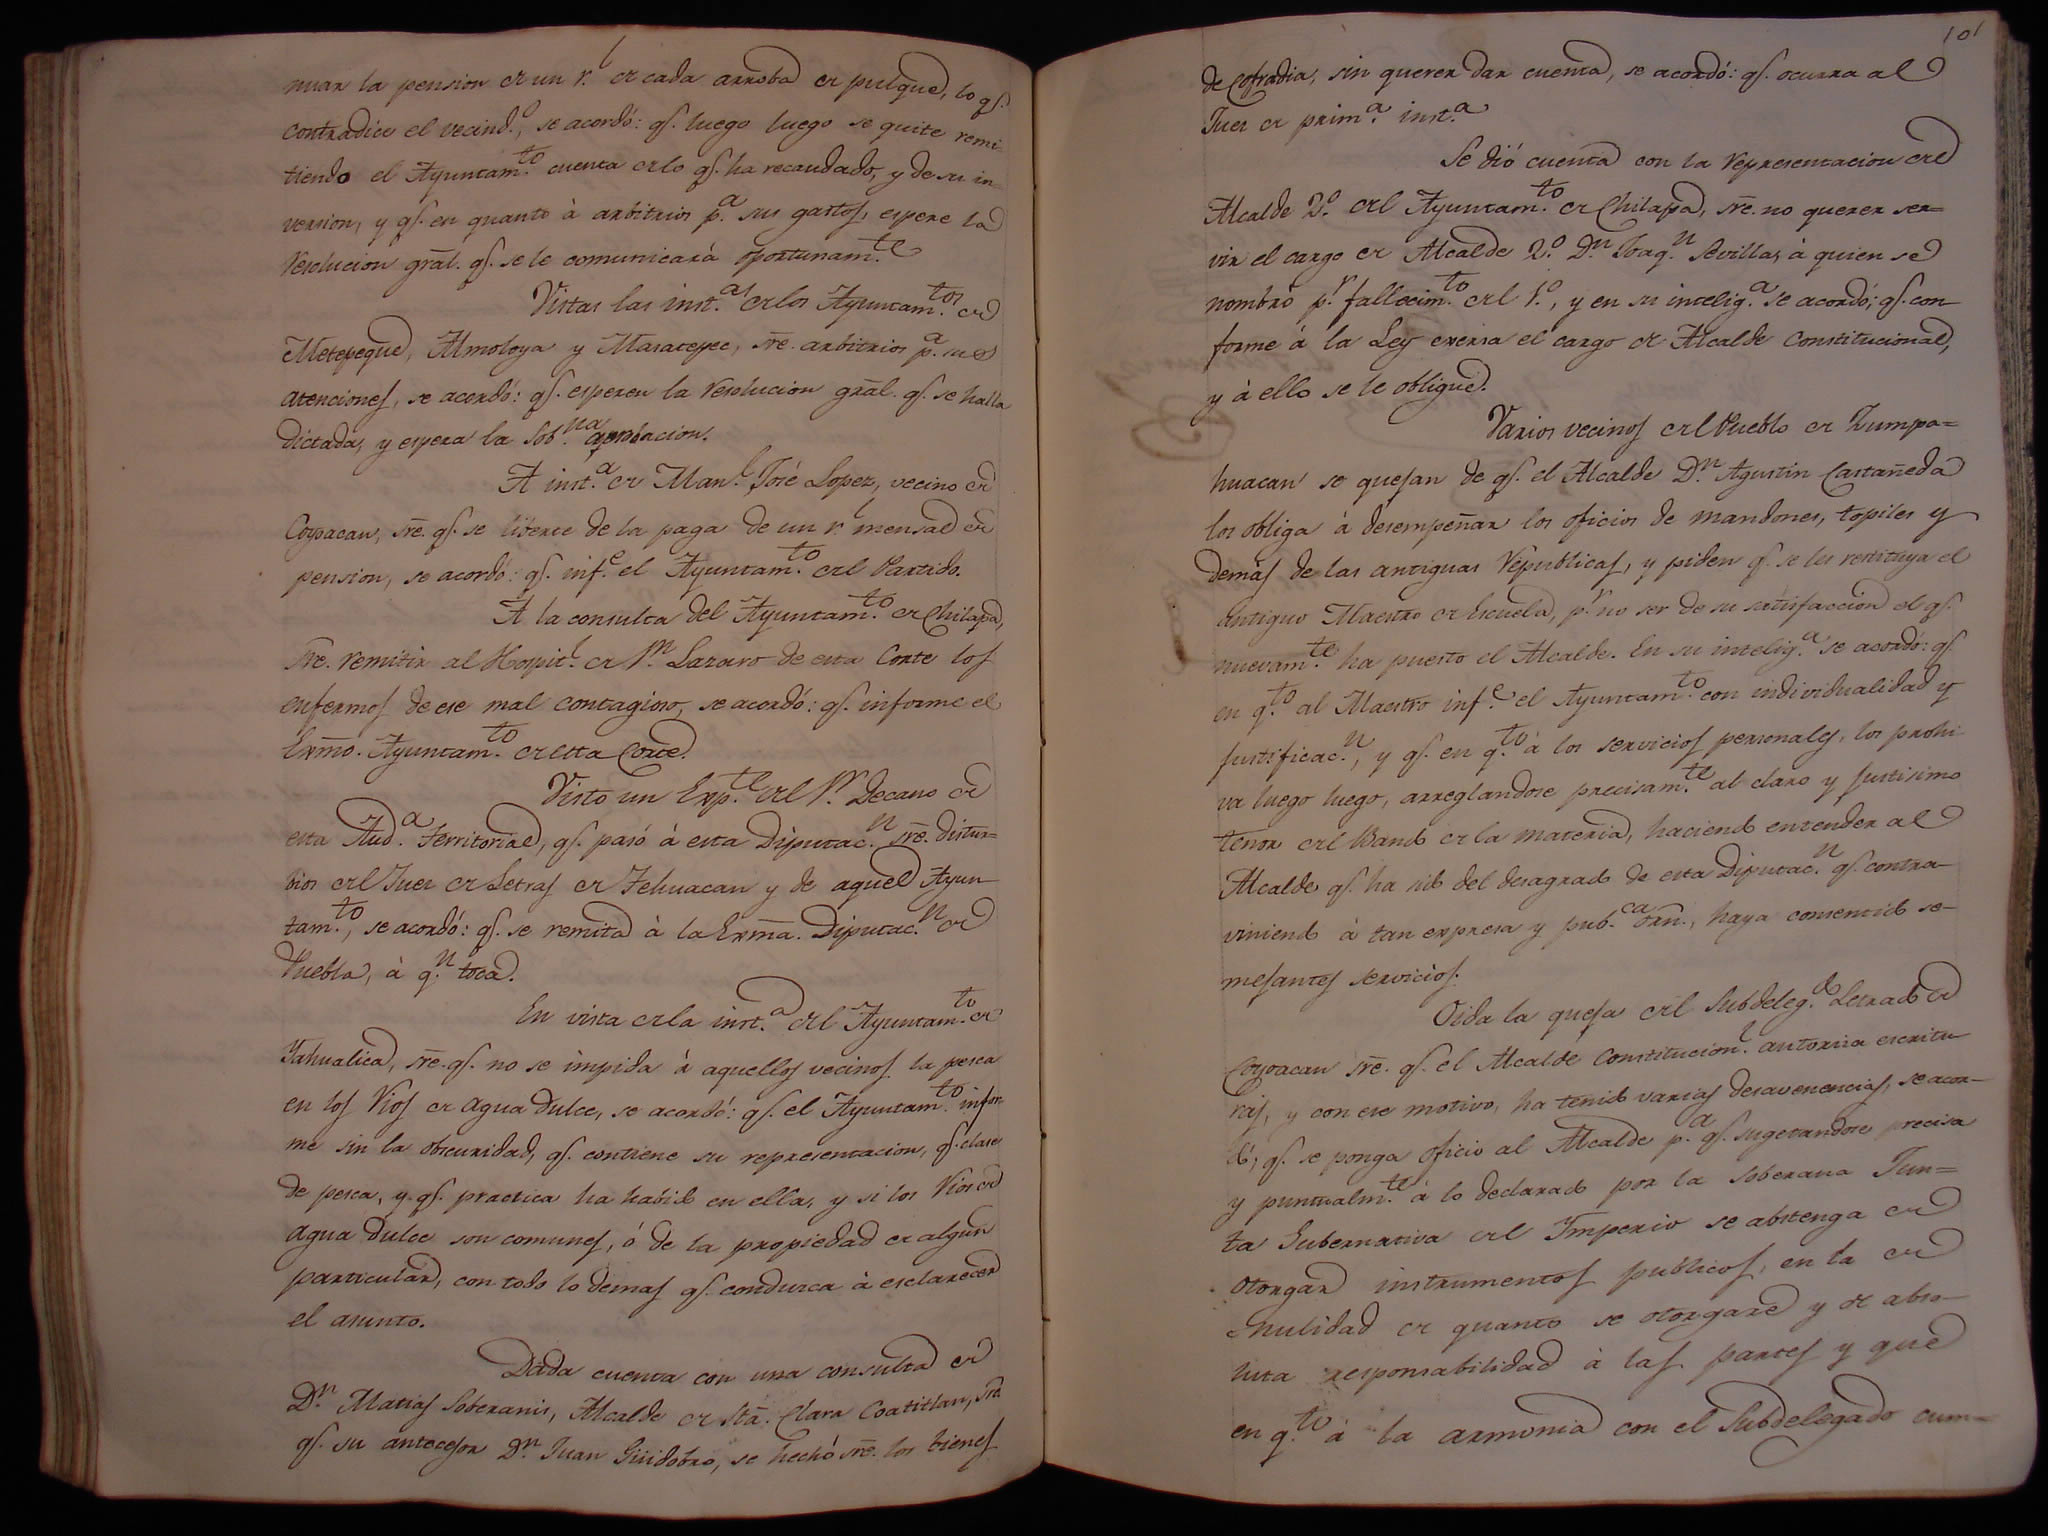 nuar la pension de un r.l de cada arroba de pulque, lo q.e
contradice el vecind.o, se acordó: q.e luego luego se quite remi-
tiendo el Ayuntam.to cuenta de lo q.e ha recaudado, y de su in-
version, y q.e en quanto à arbitrios p.a sus gastos, espere la
resolucion gral. q.e se le comunicará oportunam.te
Vistas las inst.as de los Ayuntam.tos de
Metepeque, Almoloya y Masatepec, sre. arbitrios p.a sus
atenciones, se acordó: q.e esperen la resolucion gral. q.e se halla
dictada, y espera la Sob.na aprobacion.
A inst.a de Man.l José Lopez, vecino de
Coyoacan, sre. q.e se liberte de la paga de un r.l mensal de
pension, se acordó: q.e inf.e el Ayuntam.to del Partido.
A la consulta del Ayuntam.to de Chilapa,
sre. remitir al Hospit.l de S.n Lazaro de esta Corte los
enfermos de ese mal contagioso, se acordó: q.e informe el
Exmo. Ayuntam.to de esta Corte.
Visto un Exp.te del S.r Decano de
esta Aud.a Territorial, q.e pasó à esta Diputac.n sre. distur-
bios del Juez de Letras de Tehuacan y de aquel Ayun-
tam.to, se acordó: q.e se remita à la Exma. Diputac.n de
Puebla, à q.n toca.
En vista de la inst.a del Ayuntam.to de
Yahualica, sre. q.e no se impida à aquellos vecinos la pesca
en los Rios de agua dulce, se acordó: q.e el Ayuntam.to infor-
me sin la obscuridad, q.e contiene su representacion, q.e clase
de pesca, y q.e practica ha habido en ella, y si los Rios de
agua dulce son comunes, ó de la propiedad de algun
particular, con todo lo demas q.e conduzca à esclarecer
el asunto.
Dada cuenta con una consulta de
D.n Matias Soberanis, Alcalde de Sta. Clara Coatitlan, sre.
q.e su antecesor D.n Juan Güidobro, se hechó sre. los bienes
101
de Cofradia, sin querer dar cuenta, se acordó: q.e ocurra al
Juez de prim.a inst.a
Se dió cuenta con la representacion del
Alcalde 2.o del Ayuntam.to de Chilapa, sre. no querer ser-
vir el cargo de Alcalde 2.o D.n Joaq.n Sevilla, à quien se
nombró p.r fallecim.to del 1.o, y en su intelig.a se acordó; q.e con-
forme á la Ley exersa el cargo de Alcalde Constitucional,
y à ello se le obligue.
Varios vecinos del Pueblo de Zumpa-
huacan se quejan de q.e el Alcalde D.n Agustin Castañeda
los obliga à desempeñar los oficios de mandones, topiles y
demas de las antiguas Republicas, y piden q.e se les restituya el
antiguo Maestro de Escuela, p.r no ser de su satisfaccion el q.e
nuevam.te ha puesto el Alcalde. En su intelig.a se acordó: q.e
en q.to al Maestro inf.e el Ayuntam.to con individualidad y
justificac.n, y q.e en q.to à los servicios personales, los prohi
va luego luego, arreglandose precisam.te al claro y justisimo
tenor del Bando de la materia, haciendo entender al
Alcalde q.e ha sido del desagrado de esta Diputac.n q.e contra-
viniendo à tan expresa y pub.ca orn., haya consentido se-
mejantes servicios.
Oida la queja del Subdeleg.do Letrado de
Coyoacan sre. q.e el Alcalde Constitucion.l autoriza escritu
ras, y con ese motivo, ha tenido varias desavenencias, se acor-
dó; q.e se ponga oficio al Alcalde p.a q.e sugetandose precisa
y puntualm.te à lo declarado por la Soberana Jun-
ta Gubernativa del Imperio se abstenga de
otorgar instrumentos publicos, en la de
nulidad de quanto se otorgare y de abso-
luta responsabilidad à las partes y que
en q.to à la armonia con el Subdelegado cum-